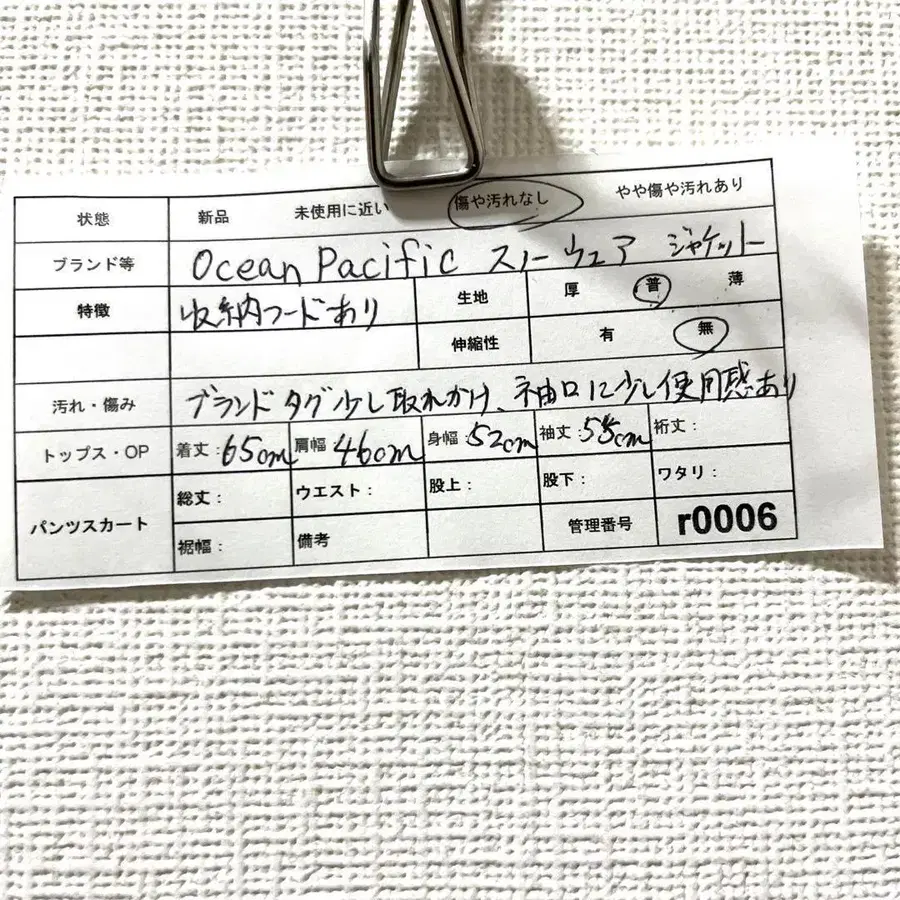 状態 新品 未使用に近い 傷や汚れなし やや傷や汚れあり
ブランド等 Ocean Pacific スノーウェア ジャケット
特徴 収納フードあり 生地 厚 普 薄
伸縮性 有 無
汚れ・傷み ブランドタグ少し取れかけ、袖口に少し使用感あり
トップス・OP 着丈：65cm 肩幅 46cm 身幅：52cm 袖丈：55cm 裄丈：
パンツスカート 総丈： ウエスト： 股上： 股下： ワタリ：
裾幅： 備考 管理番号 r0006